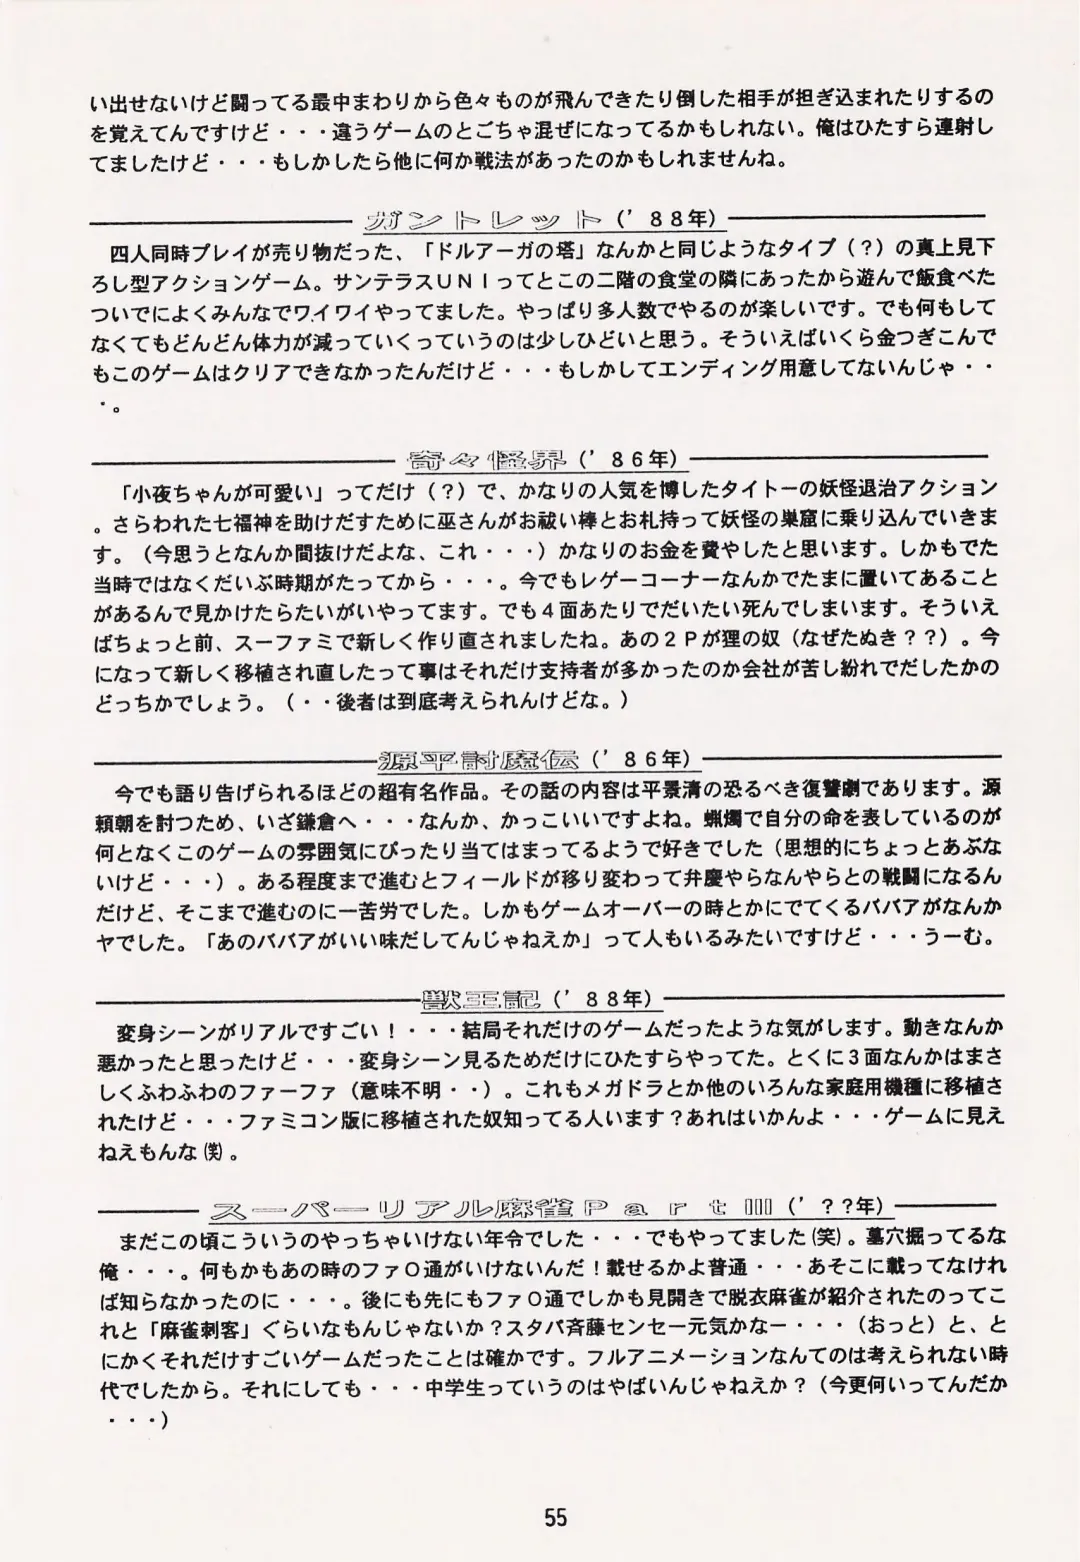 い出せないけど闘ってる最中まわりから色々ものが飛んできたり倒した相手が担ぎ込まれたりするの
を覚えてんですけど・・・違うゲームのとごちゃ混ぜになってるかもしれない。俺はひたすら連射し
てましたけど・・・もしかしたら他に何か戦法があったのかもしれませんね。
ガントレット（’８８年）
四人同時プレイが売り物だった、「ドルアーガの塔」なんかと同じようなタイプ（？）の真上見下
ろし型アクションゲーム。サンテラスＵＮＩってとこの二階の食堂の隣にあったから遊んで飯食べた
ついでによくみんなでワイワイやってました。やっぱり多人数でやるのが楽しいです。でも何もして
なくてもどんどん体力が減っていくっていうのは少しひどいと思う。そういえばいくら金つぎこんで
もこのゲームはクリアできなかったんだけど・・・もしかしてエンディング用意してないんじゃ・・
・。
奇々怪界（’８６年）
「小夜ちゃんが可愛い」ってだけ（？）で、かなりの人気を博したタイトーの妖怪退治アクション
。さらわれた七福神を助けだすために巫さんがお祓い棒とお札持って妖怪の巣窟に乗り込んでいきま
す。（今思うとなんか間抜けだよな、これ・・・）かなりのお金を費やしたと思います。しかもでた
当時ではなくだいぶ時期がたってから・・・。今でもレゲーコーナーなんかでたまに置いてあること
があるんで見かけたらたいがいやってます。でも４面あたりでだいたい死んでしまいます。そういえ
ばちょっと前、スーファミで新しく作り直されましたね。あの２Ｐが狸の奴（なぜたぬき？？）。今
になって新しく移植され直したって事はそれだけ支持者が多かったのか会社が苦し紛れでだしたかの
どっちかでしょう。（・・後者は到底考えられんけどな。）
源平討魔伝（’８６年）
今でも語り告げられるほどの超有名作品。その話の内容は平景清の恐るべき復讐劇であります。源
頼朝を討つため、いざ鎌倉へ・・・なんか、かっこいいですよね。蝋燭で自分の命を表しているのが
何となくこのゲームの雰囲気にぴったり当てはまってるようで好きでした（思想的にちょっとあぶな
いけど・・・）。ある程度まで進むとフィールドが移り変わって弁慶やらなんやらとの戦闘になるん
だけど、そこまで進むのに一苦労でした。しかもゲームオーバーの時とかにでてくるババアがなんか
ヤでした。「あのババアがいい味だしてんじゃねえか」って人もいるみたいですけど・・・うーむ。
獣王記（’８８年）
変身シーンがリアルですごい！・・・結局それだけのゲームだったような気がします。動きなんか
悪かったと思ったけど・・・変身シーン見るためだけにひたすらやってた。とくに３面なんかはまさ
しくふわふわのファーファ（意味不明・・）。これもメガドラとか他のいろんな家庭用機種に移植さ
れたけど・・・ファミコン版に移植された奴知ってる人います？あれはいかんよ・・・ゲームに見え
ねえもんな（笑）。
スーパーリアル麻雀ＰａｒｔⅢ（’？？年）
まだこの頃こういうのやっちゃいけない年令でした・・・でもやってました（笑）。墓穴掘ってるな
俺・・・。何もかもあの時のファ○通がいけないんだ！載せるかよ普通・・・あそこに載ってなけれ
ば知らなかったのに・・・。後にも先にもファ○通でしかも見開きで脱衣麻雀が紹介されたのってこ
れと「麻雀刺客」ぐらいなもんじゃないか？スタパ斉藤センセー元気かなー・・・（おっと）と、と
にかくそれだけすごいゲームだったことは確かです。フルアニメーションなんてのは考えられない時
代でしたから。それにしても・・・中学生っていうのはやばいんじゃねえか？（今更何いってんだか
・・・）
55